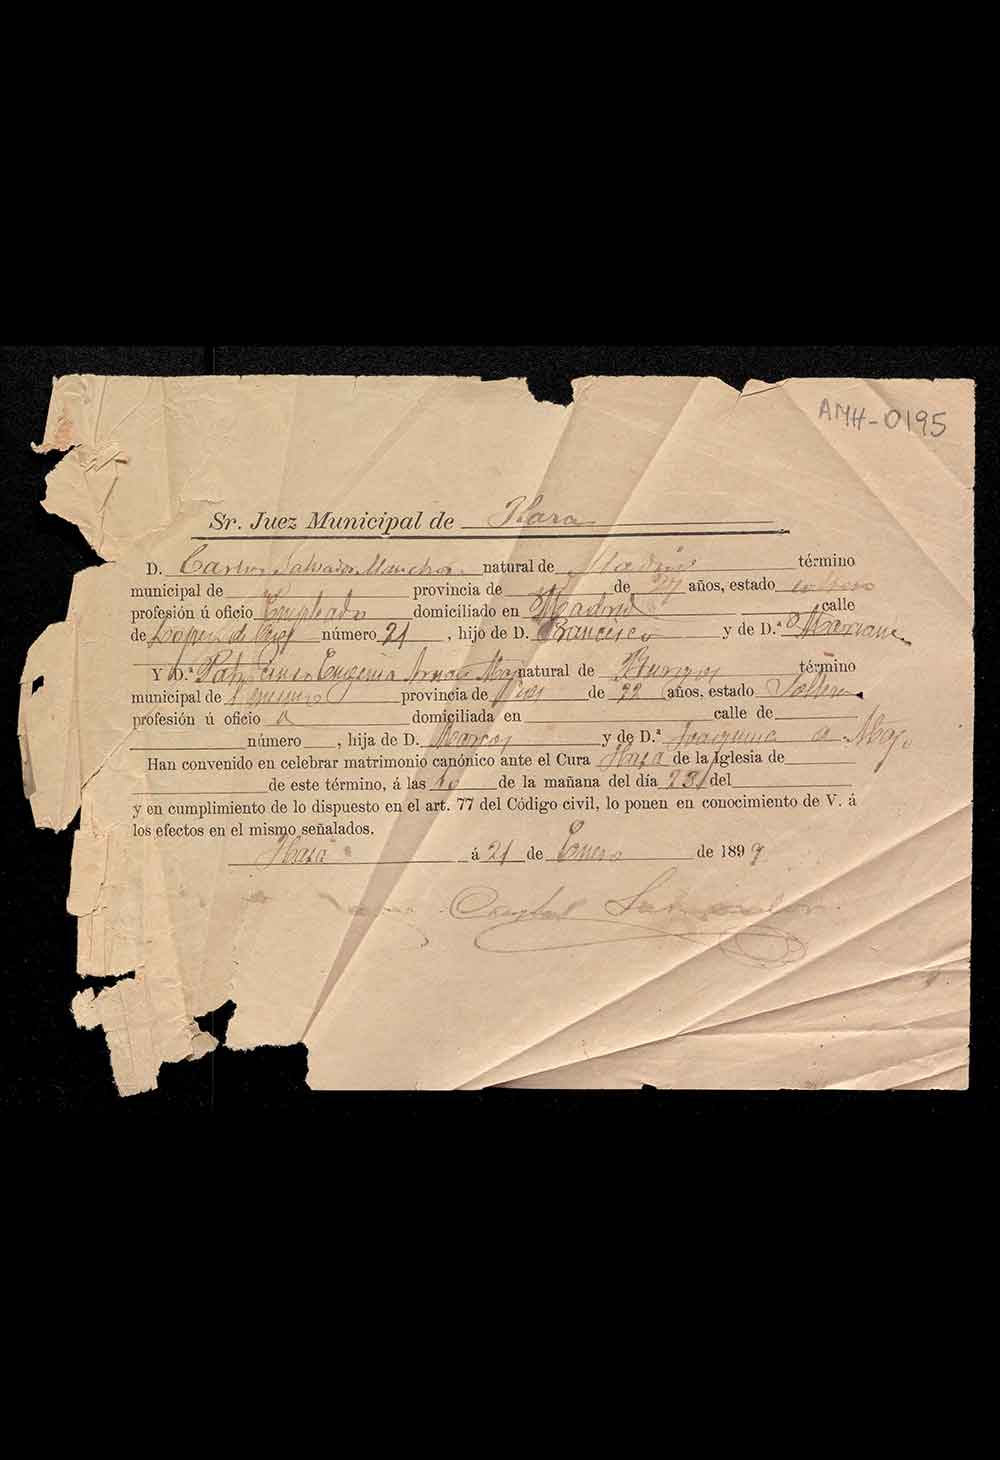 AMH-0195
Sr. Juez Municipal de Haza
D. Carlos Salvador Mancho natural de Madrid término
municipal de provincia de de 27 años, estado soltero
profesión ú oficio Empleado domiciliado en Madrid calle
de número 21, hijo de D. Francisco y de D.ª Mariana
Y D.ª Eugenia natural de Burgos término
municipal de provincia de de 22 años, estado Soltera
profesión ú oficio domiciliada en calle de
número , hija de D. Marcos y de D.ª Joaquina
Han convenido en celebrar matrimonio canónico ante el Cura Haza de la Iglesia de
de este término, á las 10 de la mañana del día 23 del
y en cumplimiento de lo dispuesto en el art. 77 del Código civil, lo ponen en conocimiento de V. á
los efectos en el mismo señalados.
Haza á 21 de Enero de 1899
Salvador